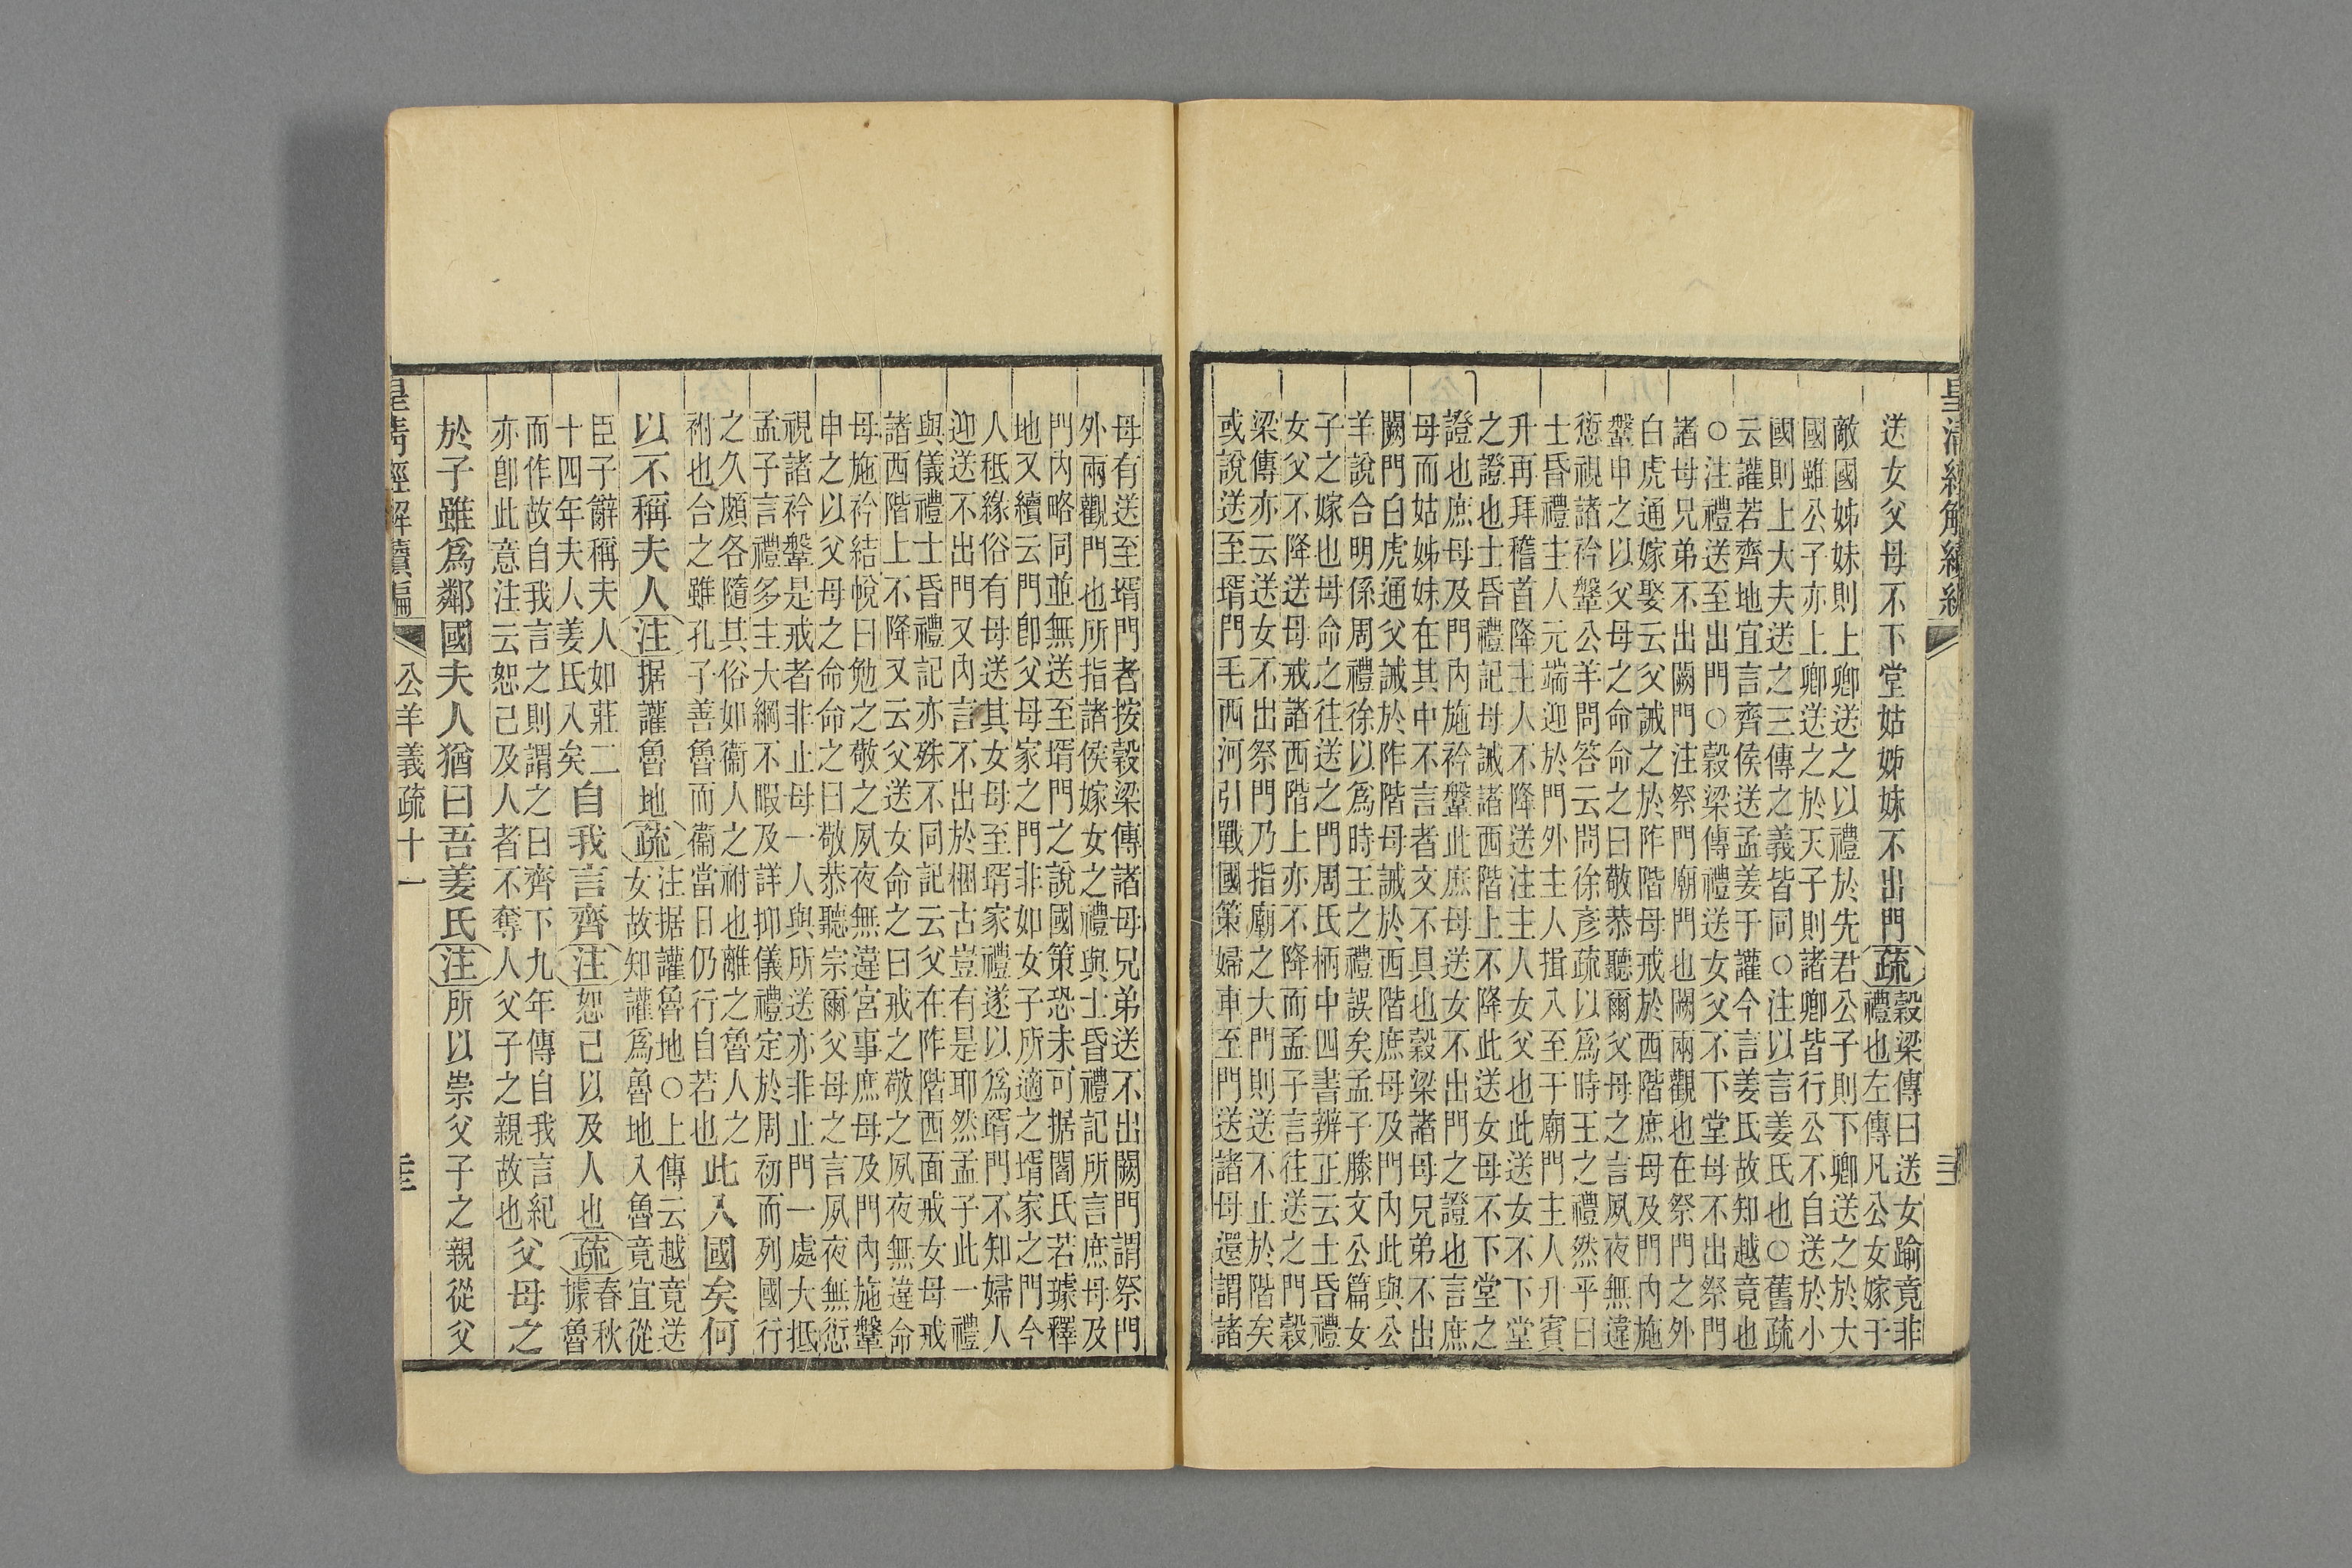 皇清經解續編
送女父母不下堂姑姊妹不出門疏
穀梁傳曰送女踰竟非
禮也左傳凡公女嫁于
敵國姊妹則上卿送之以禮於先君公子則下卿送之於大
國雖公子亦上卿送之於天子則諸卿皆行公不自送於小
國則上大夫送之三傳之義皆同○注以言姜氏也○舊疏
云讙若齊地宜言齊侯送孟姜于讙今言姜氏故知越竟也
○注禮送至出門○穀梁傳禮送女父不下堂母不出祭門
諸母兄弟不出闕門注祭門廟門也闕兩觀也在祭門之外
白虎通嫁娶云父誡之於阼階母戒於西階庶母及門内施
鞶申之以父母之命命之曰敬恭聽爾父母之言夙夜無違
愆視諸衿鞶公羊問答云問徐彥疏以爲時王之禮然乎曰
士昏禮主人元端迎於門外主人揖入至于廟門主人升賓
升再拜稽首降主人不降送注主人女父也此送女不下堂
之證也士昏禮記母誡諸西階上不降此送女母不下堂之
證也庶母及門内施衿鞶此庶母送女不出門之證也言庶
母而姑姊妹在其中不言者文不具也穀梁諸母兄弟不出
闕門白虎通父誡於阼階母誡於西階庶母及門内此與公
羊說合明係周禮徐以爲時王之禮誤矣孟子滕文公篇女
子之嫁也母命之往送之門周氏柄中四書辨正云士昏禮
女父不降送母戒諸西階上亦不降而孟子言往送之門穀
梁傳亦云送女不出祭門乃指廟之大門則送不止於階矣
或說送至壻門毛西河引戰國策婦車至門送諸母還謂諸
母有送至壻門者按穀梁傳諸母兄弟送不出闕門謂祭門
外兩觀門也所指諸侯嫁女之禮與士昏禮記所言庶母及
門内略同並無送至壻門之說國策恐未可据閻氏若璩釋
地又續云門卽父母家之門非如女子所適之壻家之門今
人秪緣俗有母送其女母至壻家禮遂以爲壻門不知婦人
迎送不出門又内言不出於梱古豈有是耶然孟子此一禮
與儀禮士昏禮記亦殊不同記云父在阼階西面戒女母戒
諸西階上不降又云父送女命之曰戒之敬之夙夜無違命
母施衿結帨曰勉之敬之夙夜無違宮事庶母及門内施鞶
申之以父母之命命之曰敬恭聽宗爾父母之言夙夜無愆
視諸衿鞶是戒者非止母一人與所送亦非止門一處大抵
孟子言禮多主大綱不暇及詳抑儀禮定於周初而列國行
之久頗各隨其俗如衞人之祔也離之魯人之
祔也合之雖孔子善魯而衞當日仍行自若也
此入國矣何
以不稱夫人注据讙魯地疏
注据讙魯地○上傳云越竟送
女故知讙爲魯地入魯竟宜從
臣子辭稱夫人如莊二
十四年夫人姜氏入矣
自我言齊注恕己以及人也疏
春秋
據魯
而作故自我言之則謂之曰齊下九年傳自我言紀
亦卽此意注云恕己及人者不奪人父子之親故也
父母之
於子雖爲鄰國夫人猶曰吾姜氏注所以崇父子之親從父
皇清經解續編 公羊義疏十一